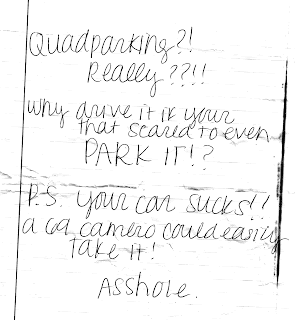 Quadparking?!
Really??!!
Why drive it if your
that scared to even
PARK IT!?
P.S. Your car sucks!!
a 69 camero could easily
take it!
Asshole.